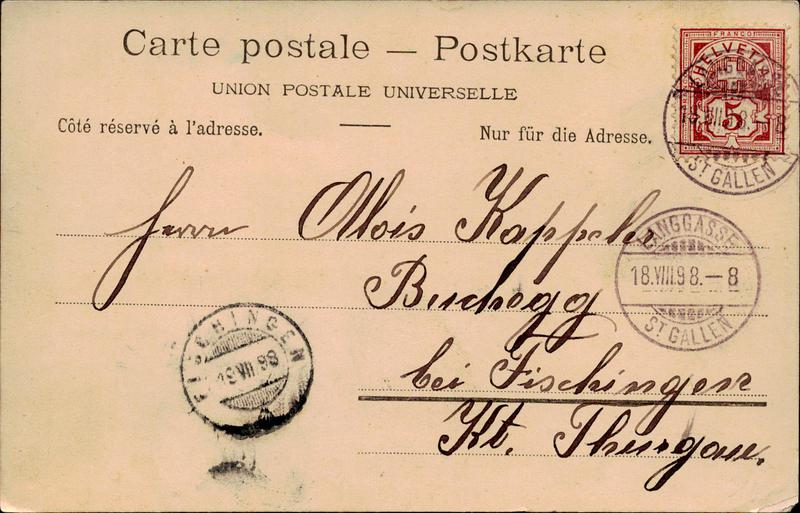 Carte postale — Postkarte
UNION POSTALE UNIVERSELLE
Côté réservé à l'adresse.
Nur für die Adresse.
FRANCO
HELVETIA
5
ST GALLEN
Herrn Alois Kappeler
LANGGASSE
18.VIII.98.–8
ST GALLEN
Buchegg
FISCHINGEN
19 VIII 98
bei Fischingen
Kt. Thurgau.